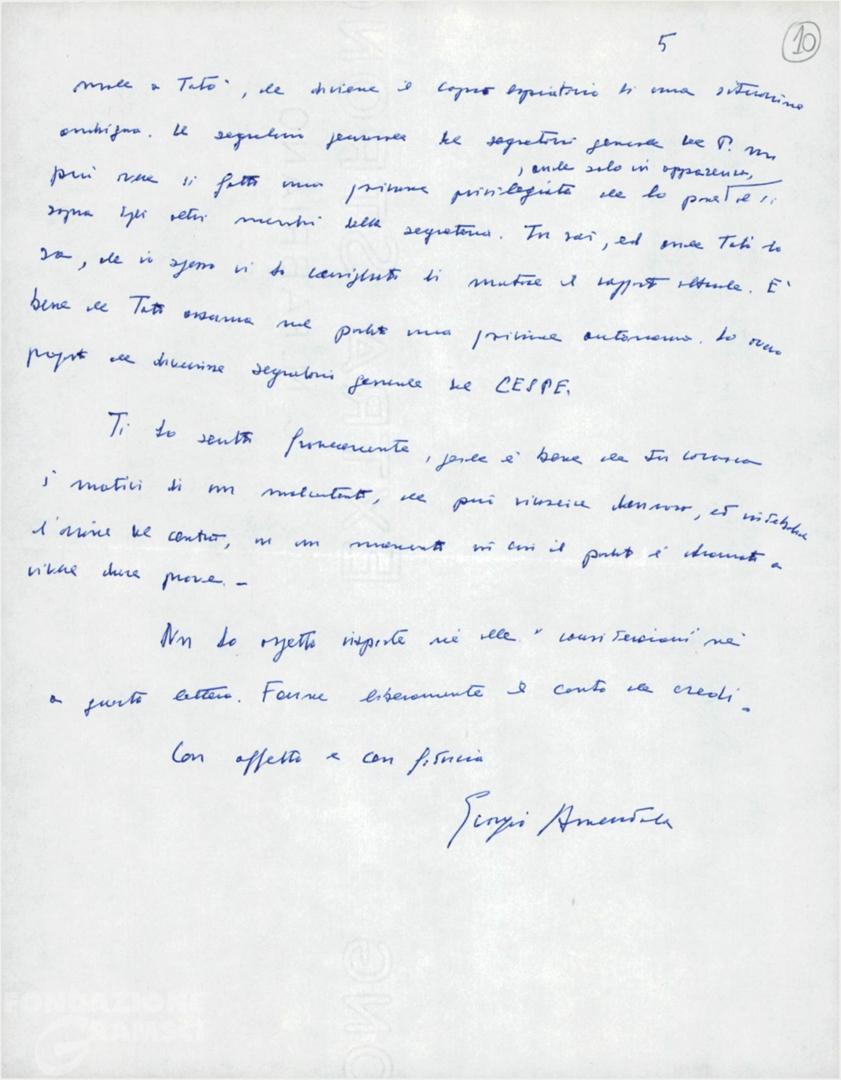 5
10
male a Tatò, che diviene il capro espiatorio di una situazione
ambigua. La segreteria generale del segretario generale del P. non
, anche solo in apparenza,
può avere di fatto una posizione privilegiata che lo ponga al di
sopra degli altri membri della segreteria. Tu sai, ed anche Tatò lo
sa, che io spesso vi ho consigliato di mutare il rapporto attuale. È
bene che Tatò assuma nel partito una posizione autonoma. Io avevo
proposto che divenisse segretario generale del CESPE.
Ti ho scritto francamente, perché è bene che tu conosca
i motivi di un malcontento, che può riuscire dannoso, ed indebolire
l'azione del centro, in un momento in cui il partito è chiamato a
vivere dure prove. –
Non ho aspettato risposte né alle "considerazioni" né
a questa lettera. Fanne liberamente il conto che credi. –
Con affetto e con fiducia
Giorgio Amendola
FONDAZIONE
GRAMSCI